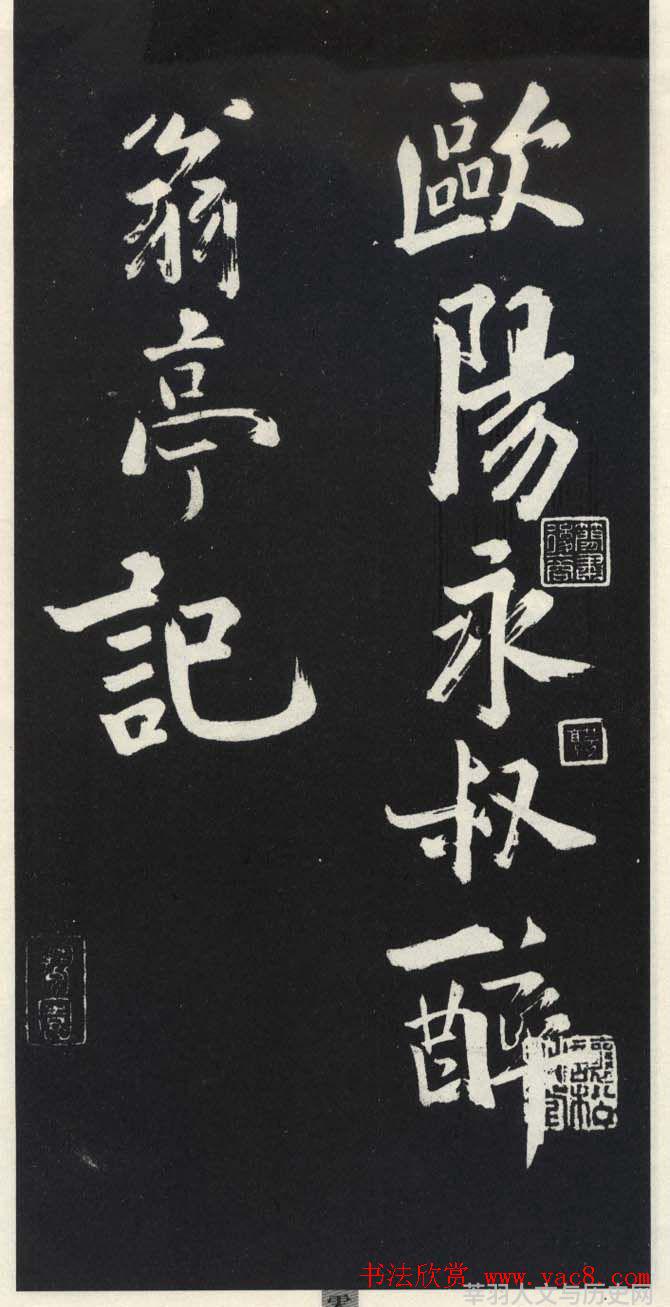 歐陽永叔醉
翁亭記
书法欣赏 www.yac8.com
莘羽人文与历史网